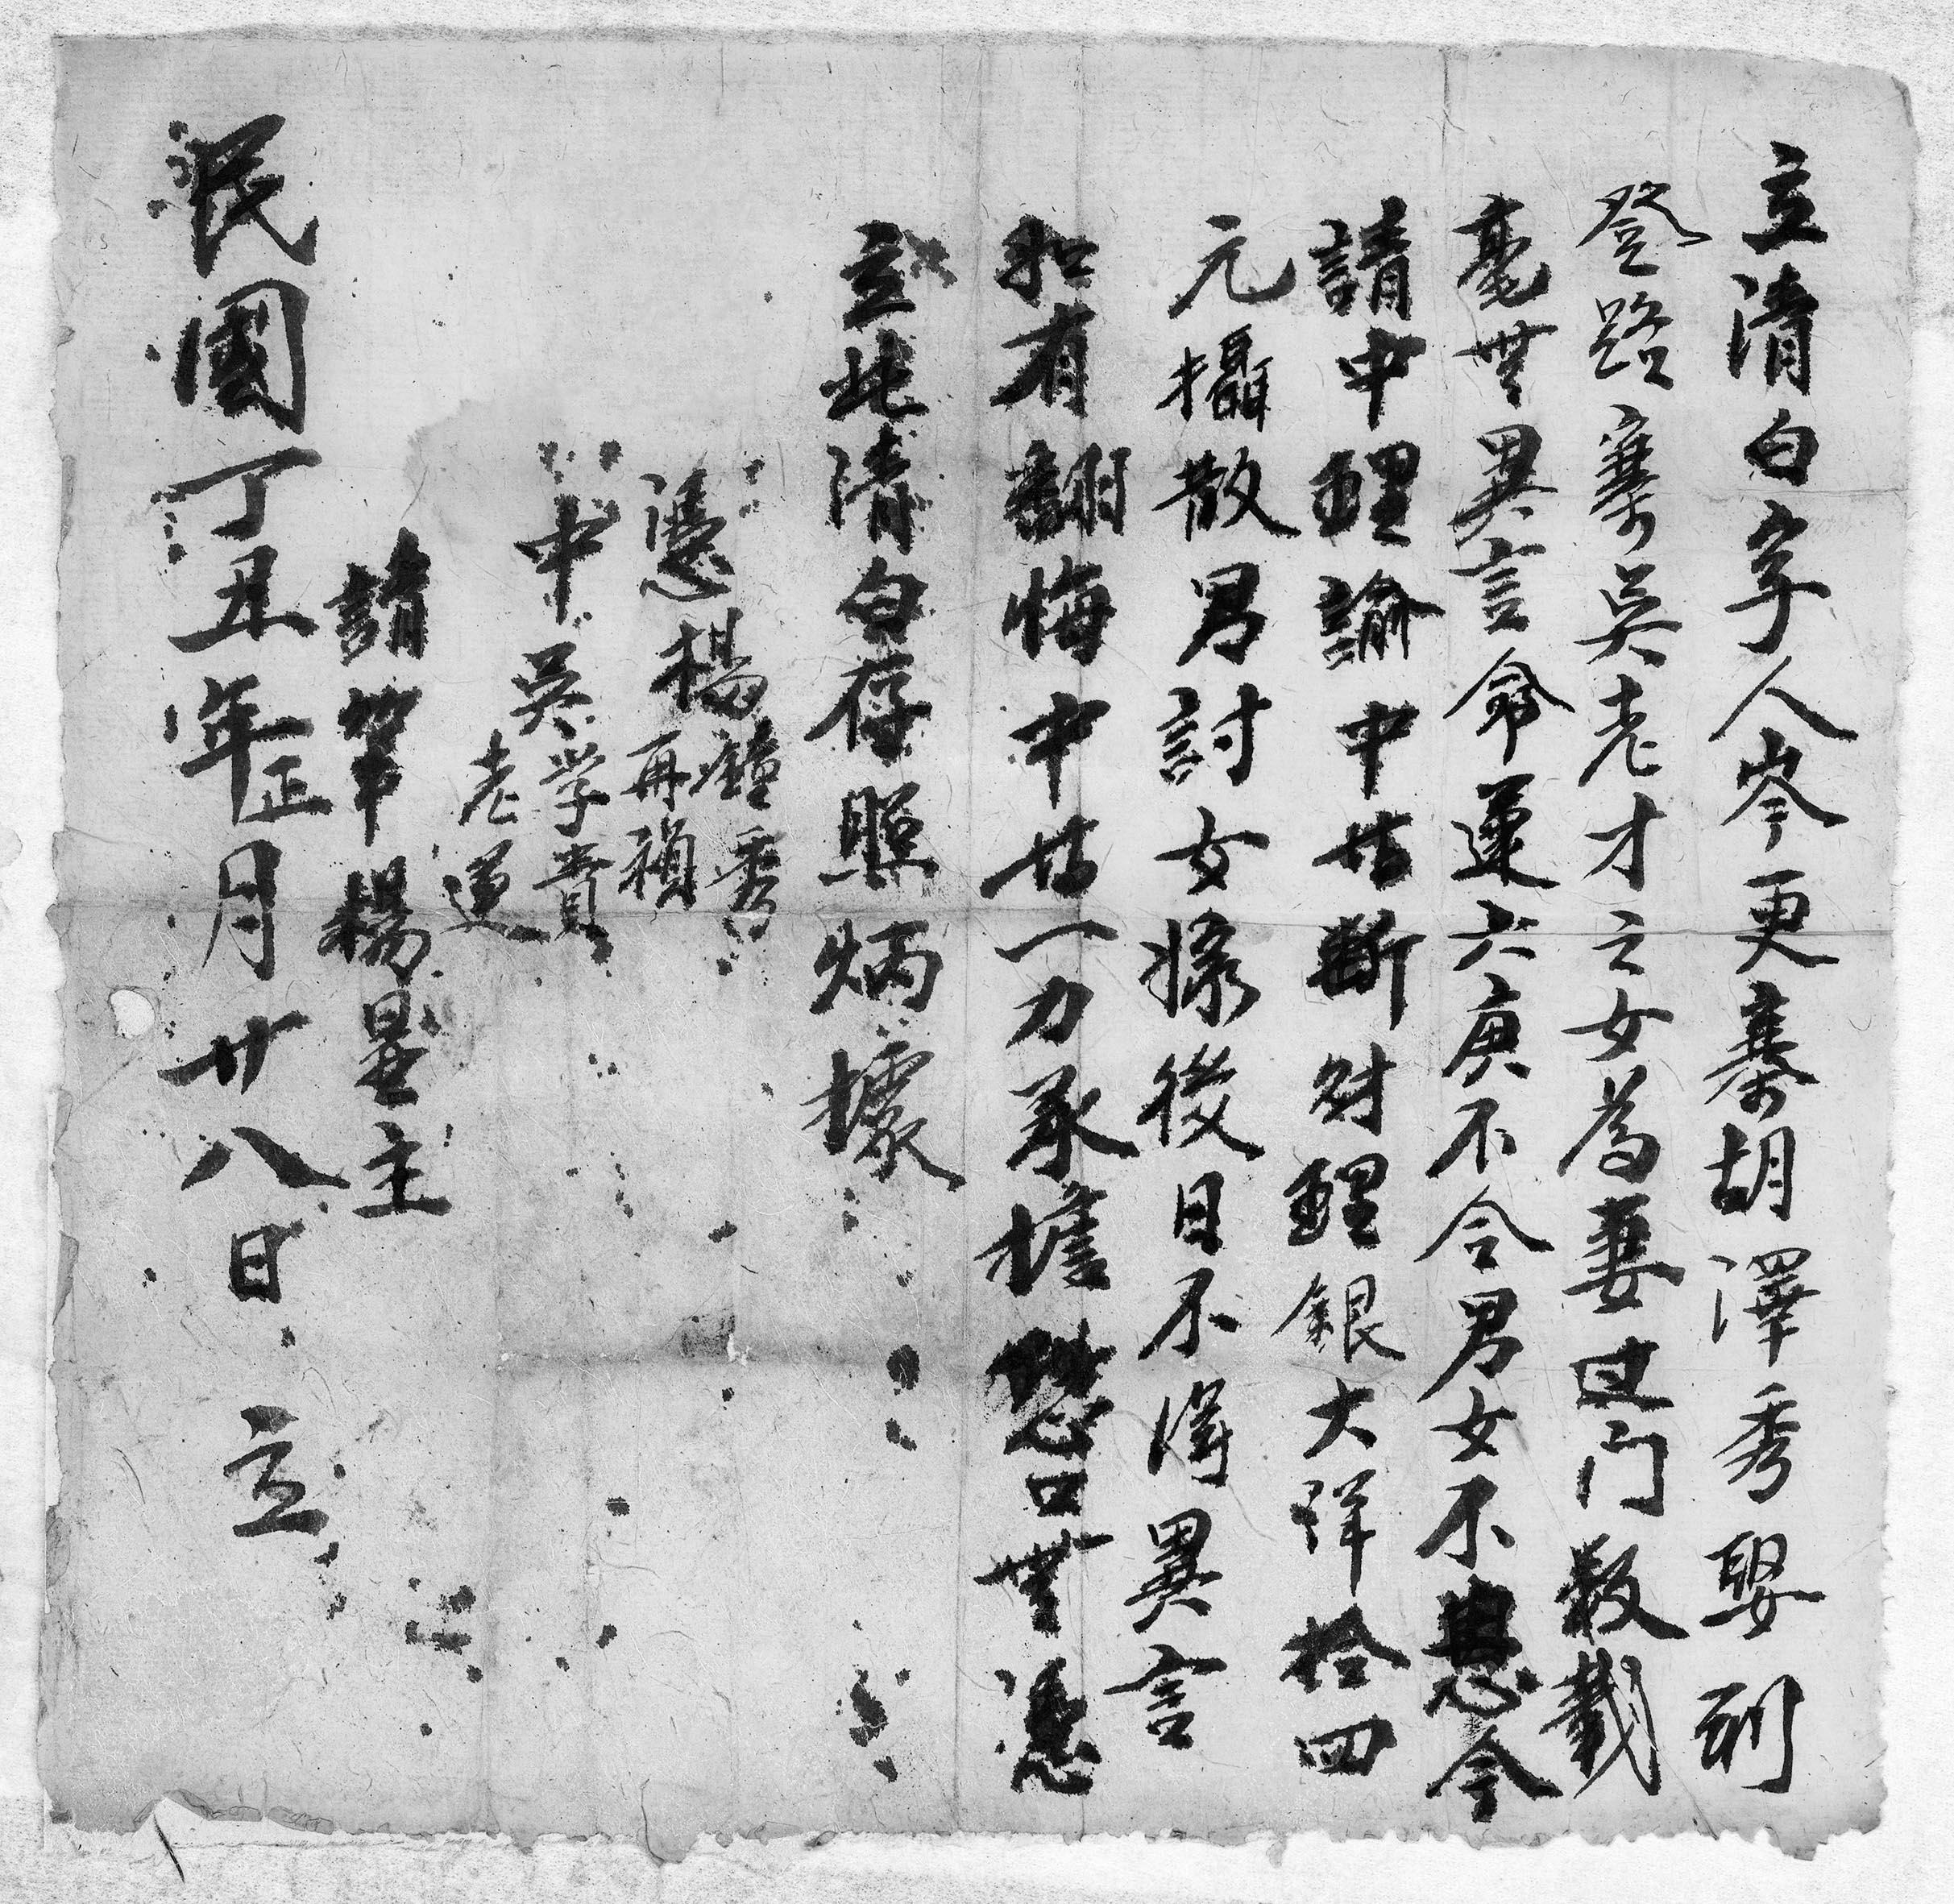 立清白字人岑更寨胡澤秀娶到
登路寨吳老才之女為妻过门数載
毫無異言命運六庚不合男女不思今
請中理論中姑断财理銀大洋拾四
元攝散男討女嫁後日不得異言
如有翻悔中姑一力承擔恐口無憑
立此清白存照炳據
憑楊鐘秀
再禎
中吳学貴
老運
請筆楊星主
民國丁丑年正月廿八日立